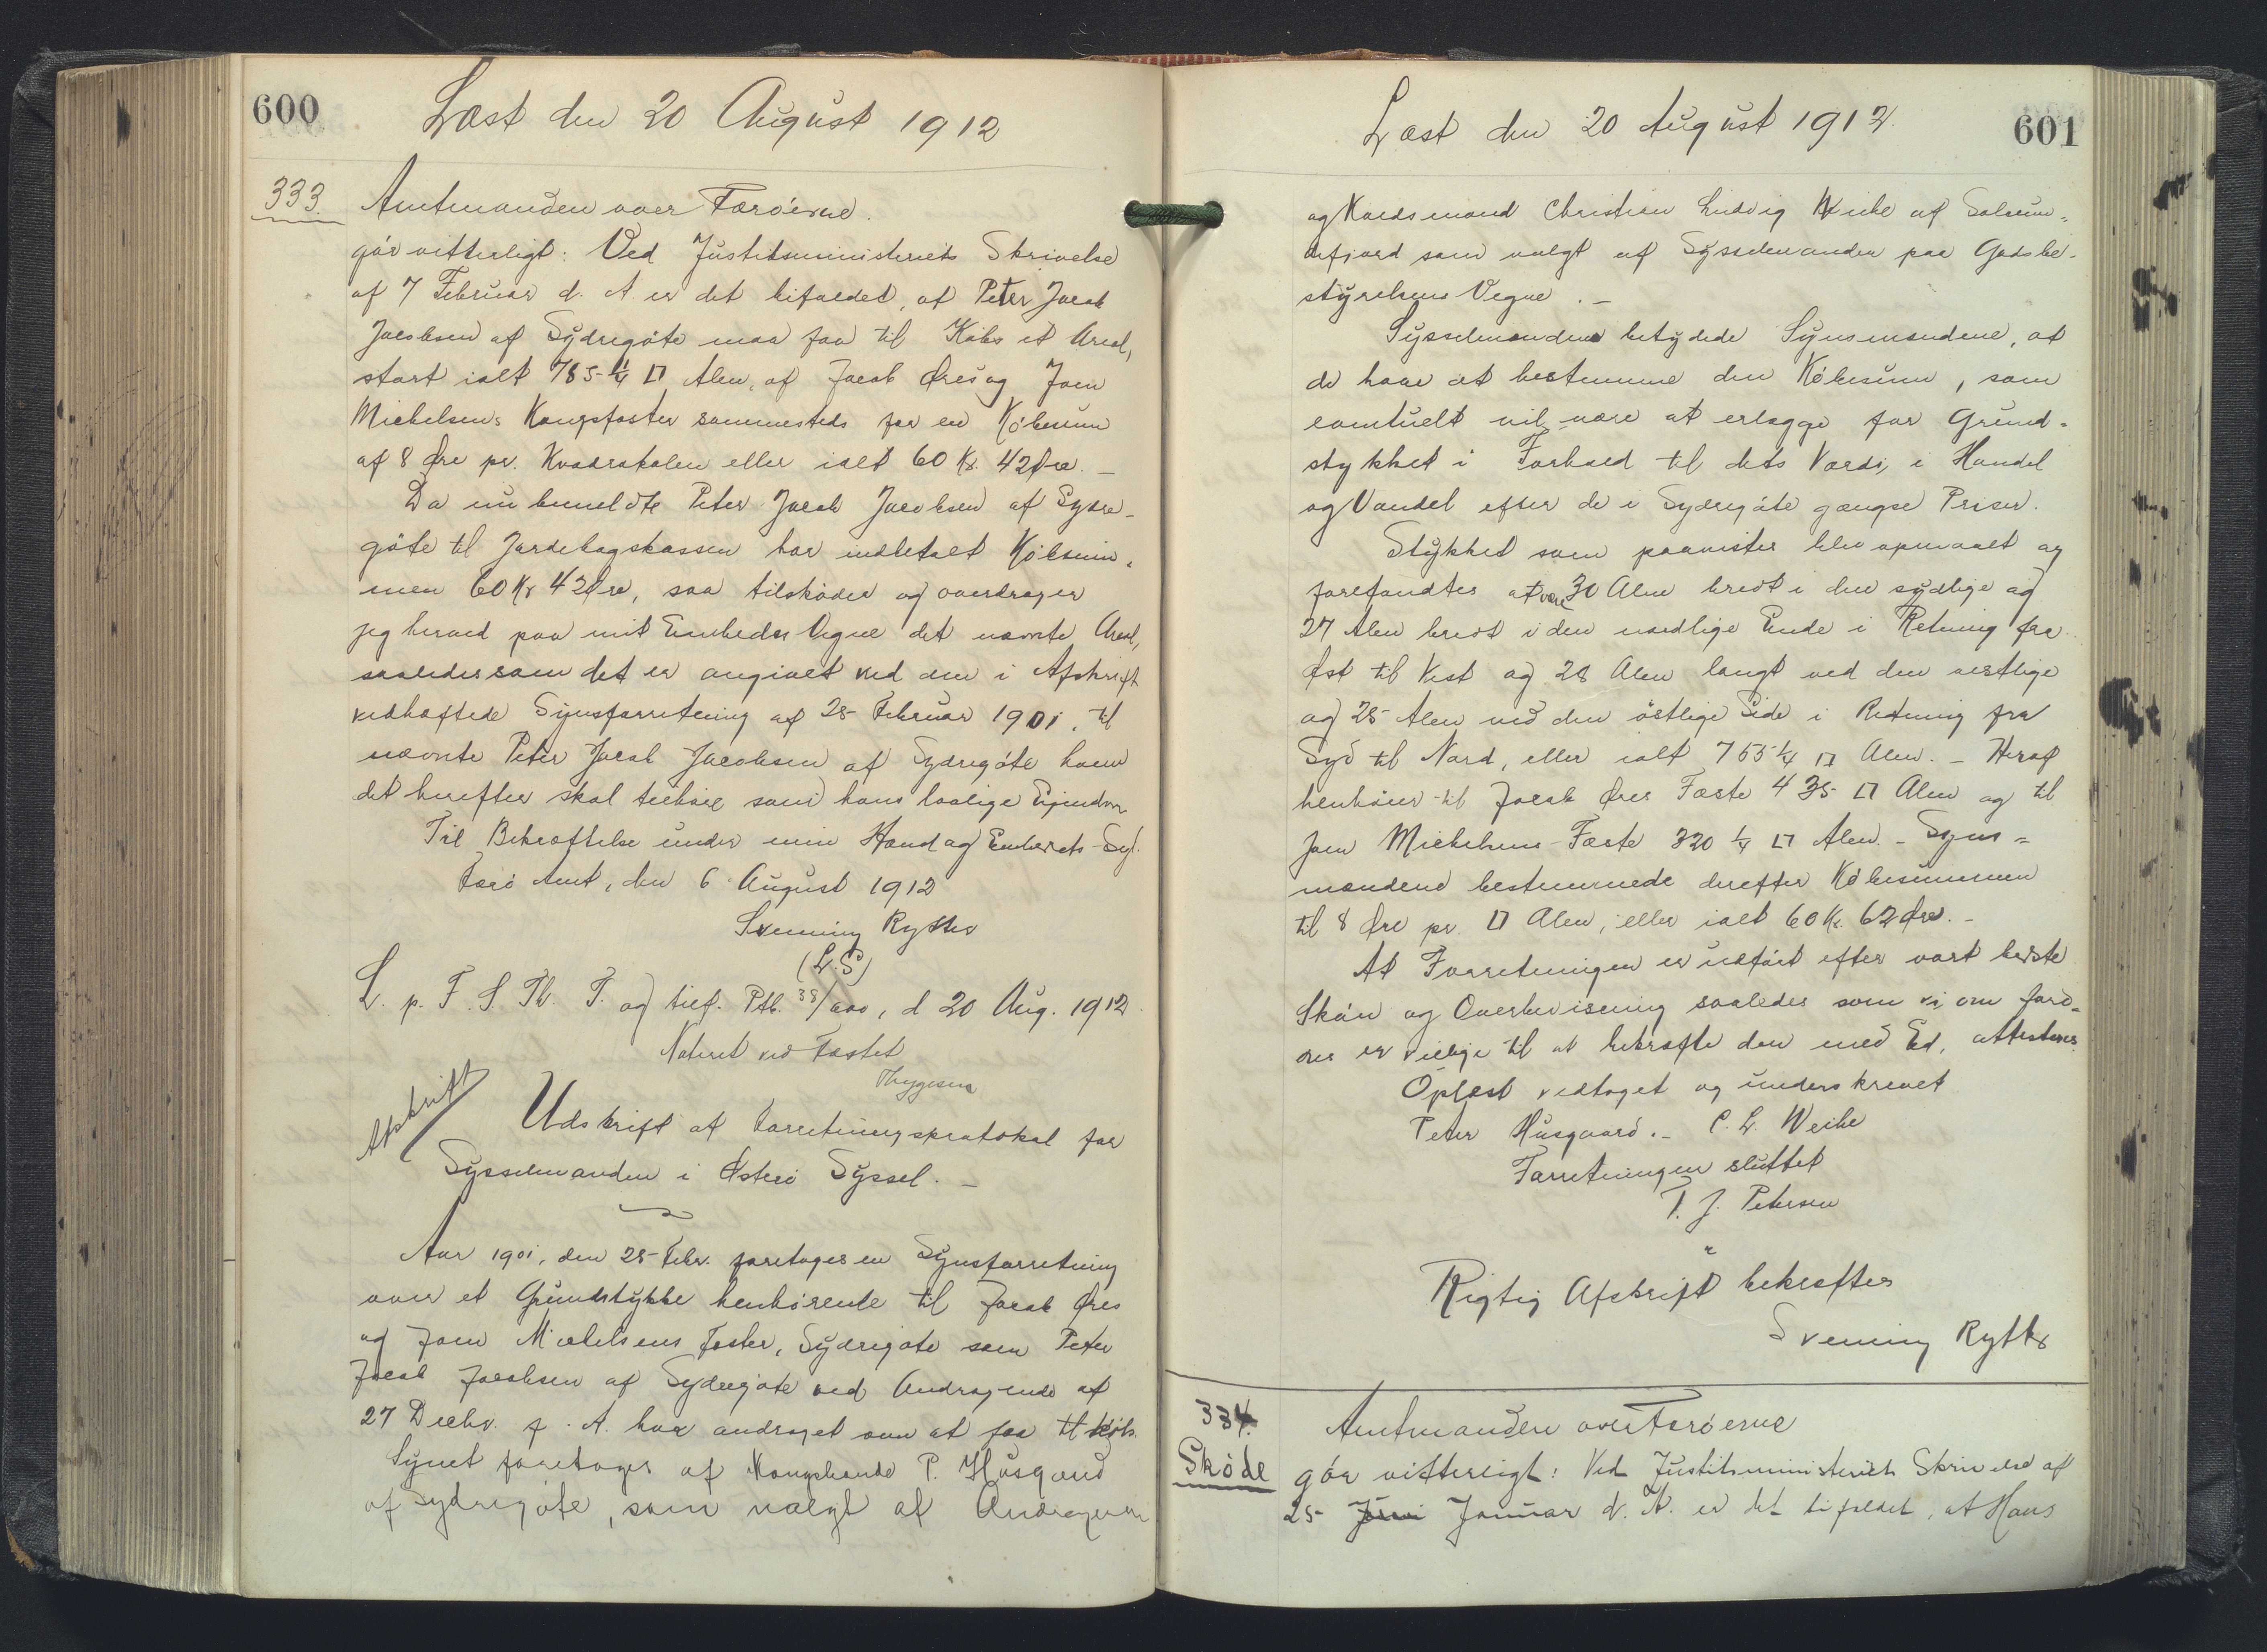 600
Læst den 20 August 1912
333.
Amtmanden over Færøerne.
gör vitterligt: Ved Justitsministeriets Skrivelse
af 7 Februar d. A. er det bifaldet, at Peter Jacob
Jacobsen af Sydregöte maa faa til Købs et Areal,
stort ialt 785 1/4 □ Alen, af Jacob Øres og Joen
Michelsens Kongsfæster sammesteds for en Købesum
af 8 Øre pr. Kvadratalen eller ialt 60 Kr. 42 Øre. –
Da nu bemeldte Peter Jacob Jacobsen af Sydre-
göte til Jordebogskassen har indbetalt Köbesum-
men 60 Kr 42 Øre, saa tilsköder og overdrager
jeg herved paa mit Embedes Vegne det nævnte Areal,
saaledes som det er angivet ved den i Afskrift
vedhæftede Synsforretning af 25 Februar 1901, til
nævnte Peter Jacob Jacobsen af Sydregöte hvem
det herefter skal tilhöre som hans lovlige Ejendom
Til Bekræftelse under min Haand og Embeds-Segl.
Færö Amt, den 6 August 1912
Svenning Rytter
(L.S)
L. p. F. S. Th. T. og tilf. Ptk. 38/600, d 20 Aug. 1912
Noteret ved Fæstet
Thygesen
Afskrift
Udskrift af Forretningsprotokol for
Sysselmanden i Österö Syssel. –
Aar 1901, den 25 Febr. foretoges en Synsforretning
over et Grundstykke henhörende til Jacob Øres
og Joen Michelsens Fæster, Sydregöte som Peter
Jacob Jacobsen af Sydregöte ved Andragende af
27 Decbr. f. A. har andraget om at faa til Köbs.
Synet foretoges af Kongsbonde P. Husgaard
af Sydregöte, som valgt af Andrageren
601
Læst den 20 August 1912.
og Christian Ludvig Weihe af Solmun-
defjord som valgt af Sysselmanden paa Godsbe-
styrelsens Vegne. –
Sysselmanden betydede Synsmændene, at
de have at bestemme den Købesum, som
eventuelt vil være at erlægge for Grund-
stykket i Forhold til dets Værdi i Handel
og Vandel efter de i Sydregöte gængse Priser.
Stykket som paavistes blev opmaalt og
forefandtes at være 30 Alen bredt i den sydlige og
27 Alen bredt i den nordlige Ende i Retning fra
Øst til Vest og 28 Alen langt ved den vestlige
og 25 Alen ved den östlige Side i Retning fra
Syd til Nord, eller ialt 755 1/4 □ Alen. – Heraf
henhörer til Jacob Øres Fæste 435 □ Alen og til
Joen Michelsens Fæste 320 1/4 □ Alen. – Syns=
mændene bestemmede derefter Købesummen
til 8 Øre pr. □ Alen, eller ialt 60 Kr. 62 Øre. –
At Forretningen er udfört efter vort bedste
Skön og Overbevisning saaledes som vi, om ford-
res er villige til at bekræfte den med Ed, attesteres.
Oplæst vedtaget og underskrevet
Peter Husgaard. – C. L. Weihe
Forretningen sluttet
T. J. Petersen
Rigtig Afskrift bekræftes
Svenning Rytter
334.
Sköde
Amtmanden over Færøerne
gör vitterligt: Ved Justitsministeriets Skrivelse af
25 Juni Januar d. A. er det bifaldet, at Hans